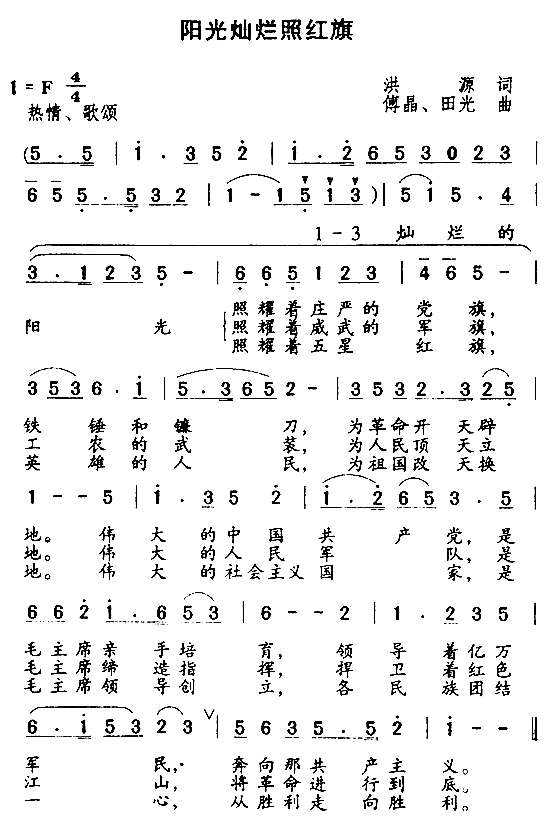 阳光灿烂照红旗
1 = F 4/4
洪 源 词
热情、歌颂
傅晶、田光 曲
(5 . 5 | i . 3 5 2 | i . 2 6 5 3 0 2 3
6 5 5 . 5 3 2 | 1 - 1 5 1 3 ) | 5 1 5 . 4
1 - 3 灿 烂 的
3 . 1 2 3 5 - | 6 6 5 1 2 3 | 4 6 5 -
照耀着庄严的 党 旗,
阳 光 照耀着威武的 军 旗,
照耀着五星 红 旗,
3 5 3 6 . i | 5 . 3 6 5 2 - | 3 5 3 2 . 3 2 5
铁 锤和镰 刀, 为革命开 天辟
工 农的武 装, 为人民顶 天立
英 雄的人 民, 为祖国改 天换
1 - - 5 | i . 3 5 2 | i . 2 6 5 3 . 5
地。 伟 大 的中国 共 产 党,是
地。 伟 大 的人民 军 队,是
地。 伟 大 的社会主义国 家,是
6 6 2 i . 6 5 3 | 6 - - 2 | 1 . 2 3 5
毛主席亲 手培 育, 领 导 着亿万
毛主席缔 造指 挥, 捍 卫 着红色
毛主席领 导创 立, 各 民 族团结
6 . i 5 3 2 3 ∨ | 5 6 3 5 . 5 | i - - ‖
军 民, 奔向那共 产主 义。
江 山, 将革命进 行到 底。
一 心, 从胜利走 向胜 利。